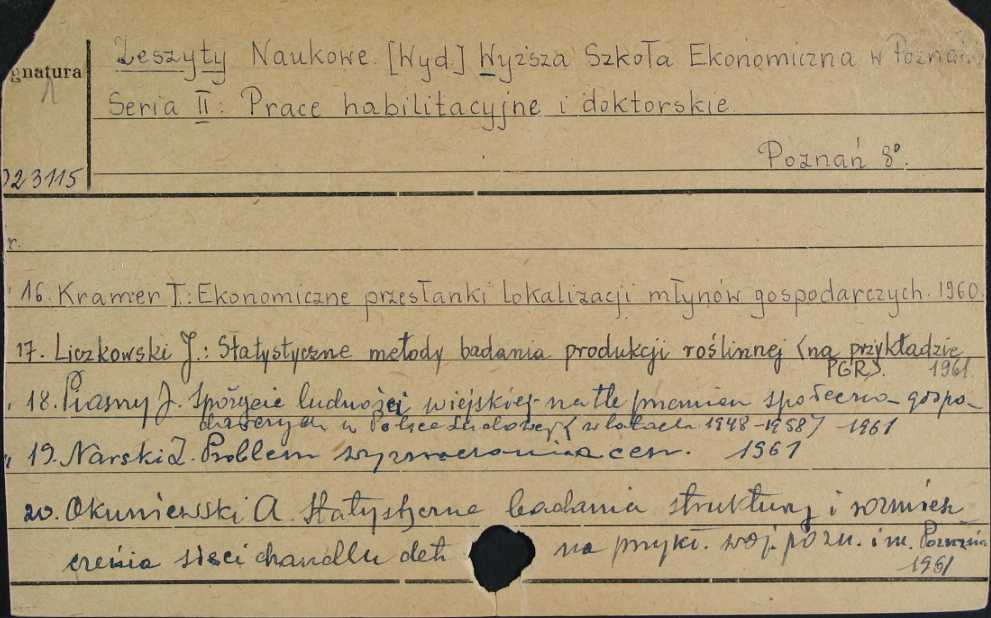 Zeszyty Naukowe. [Wyd.] Wyższa Szkoła Ekonomiczna w Poznaniu
gnatura
Seria II: Prace habilitacyjne i doktorskie.
Poznań 8°.
023115
r.
16. Kramer T.: Ekonomiczne przesłanki lokalizacji młynów gospodarczych. 1960.
17. Liczkowski J.: Statystyczne metody badania produkcji roślinnej (na przykładzie
PGR). 1961.
18. Piasny J. Spożycie ludności wiejskiej na tle przemian społeczno-gospo-
darczych w Polsce Ludowej (w latach 1948-1958) 1961
19. Narski Z. Problem wyznaczania cen. 1961
20. Okuniewski A. Statystyczne badania struktury i rozmiesz
czenia sieci chandlu det na przykł. woj. pozn. i m. Poznania
1961